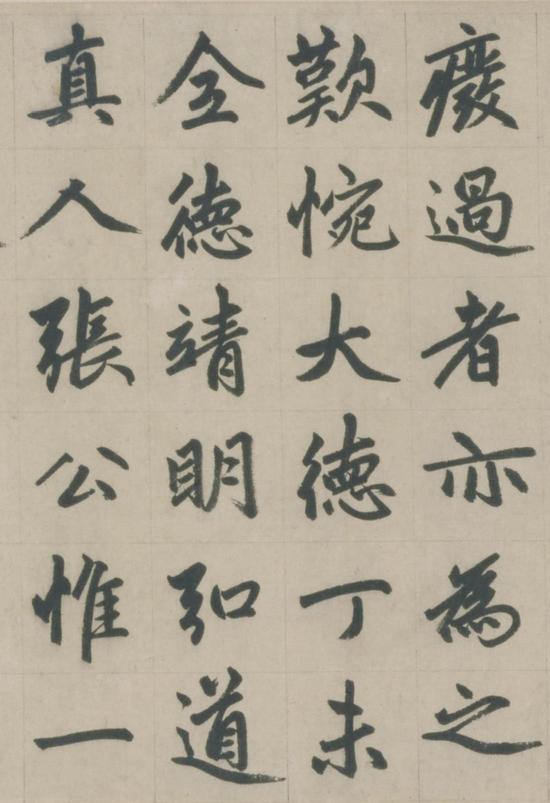 廢過者亦為之
歎惋大德丁未
全德靖明弘道
真人張公惟一